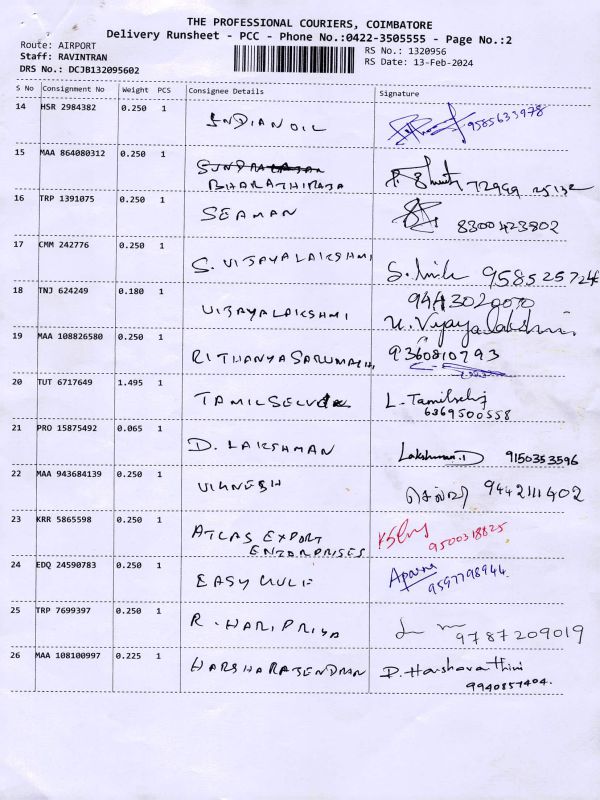 THE PROFESSIONAL COURIERS, COIMBATORE
Delivery Runsheet - PCC - Phone No.:0422-3505555 - Page No.:2
Route: AIRPORT
RS No.: 1320956
Staff: RAVINTRAN
RS Date: 13-Feb-2024
DRS No.: DCJB132095602
S No Consignment No Weight PCS Consignee Details Signature
14 HSR 2984382 0.250 1 INDIAN OIL 9585633978
15 MAA 864080312 0.250 1
BHARATHIRAJA 72999
16 TRP 1391075 0.250 1 SEAMAN 8300423802
17 CMM 242776 0.250 1 S. VIJAYALAKSHMI
18 TNJ 624249 0.180 1 VIJAYALAKSHMI 9443020070
19 MAA 108826580 0.250 1 9360810793
20 TUT 6717649 1.495 1 TAMILSELVI L. Tamilselvi
6369500558
21 PRO 15875492 0.065 1 D. LAKSHMAN Lakshman.D 9150353596
22 MAA 943684139 0.250 1 VIGNESH 9442111402
23 KRR 5865598 0.250 1 ATLAS EXPORT
ENTERPRISES 9500318825
24 EDQ 24590783 0.250 1 Aparna
9597798944.
25 TRP 7699397 0.250 1 R. HARIPRIYA 9787209019
26 MAA 108100997 0.225 1 HARSHARAJENDRAN D. Harshavarthini
9940857404.